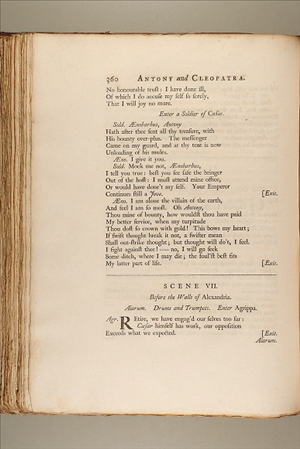 360 ANTONY and CLEOPATRA.
No honourable trust: I have done ill,
Of which I do accuse my self so sorely,
That I will joy no more.
Enter a Soldier of Cæsar.
Sold. Ænobarbus, Antony
Hath after thee sent all thy treasure, with
His bounty over-plus. The messenger
Came on my guard, and at thy tent is now
Unloading of his mules.
Æno. I give it you.
Sold. Mock me not, Ænobarbus,
I tell you true: best you see safe the bringer
Out of the host: I must attend mine office,
Or would have done't my self. Your Emperor
Continues still a Jove. [Exit.
Æno. I am alone the villain of the earth,
And feel I am so most. Oh Antony,
Thou mine of bounty, how wouldst thou have paid
My better service, when my turpitude
Thou dost so crown with gold! This bows my heart;
If swift thought break it not, a swifter mean
Shall out-strike thought; but thought will do't, I feel.
I fight against thee! — no, I will go seek
Some ditch, where I may die; the foul'st best fits
My latter part of life. [Exit.
SCENE VII.
Before the Walls of Alexandria.
Alarum. Drums and Trumpets. Enter Agrippa.
Agr. REtire, we have engag'd our selves too far:
Cæsar himself has work, our opposition
Exceeds what we expected. [Exit.
Alarum.